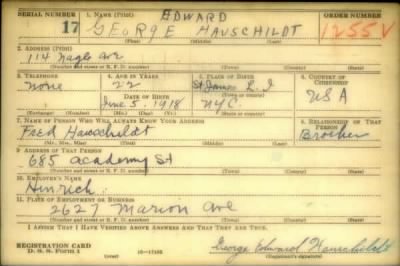 SERIAL NUMBER 1. NAME (Print) EDWARD ORDER NUMBER
17 GEORGE HAUSCHILDT 1255V
(First) (Middle) (Last)
2. ADDRESS (Print)
114 Nagle Ave
(Number and street or R. F. D. number) (Town) (County) (State)
3. TELEPHONE 4. AGE IN YEARS 5. PLACE OF BIRTH 6. COUNTRY OF CITIZENSHIP
None 22 St James L.I
DATE OF BIRTH
June 5. 1918 NYC. USA
(Exchange) (Number) (Mo.) (Day) (Yr.) (State or country)
7. NAME OF PERSON WHO WILL ALWAYS KNOW YOUR ADDRESS 8. RELATIONSHIP OF THAT PERSON
Fred Hauschildt Brother
(Mr., Mrs., Miss) (First) (Middle) (Last)
9. ADDRESS OF THAT PERSON
685 Academy St
(Number and street or R. F. D. number) (Town) (County) (State)
10. EMPLOYER'S NAME
Hinrich
11. PLACE OF EMPLOYMENT OR BUSINESS
2627 Marion Ave
(Number and street or R. F. D. number) (Town) (County) (State)
I AFFIRM THAT I HAVE VERIFIED ABOVE ANSWERS AND THAT THEY ARE TRUE.
REGISTRATION CARD George Edward Hauschildt
D. S. S. Form 1 (over) (Registrant's signature)